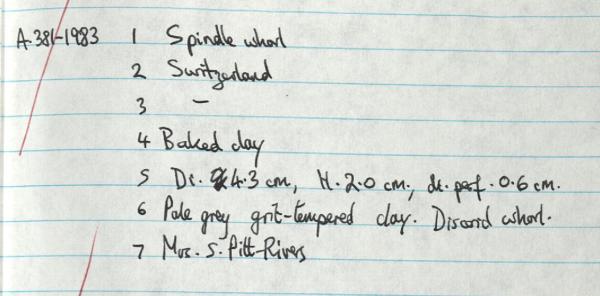 A.381-1983 1 Spindle whorl
2 Switzerland
3 –
4 Baked clay
5 Di. 4.3 cm, H. 2.0 cm, di. perf. 0.6 cm.
6 Pale grey grit-tempered clay. Discoid whorl.
7 Mrs. S. Pitt-Rivers